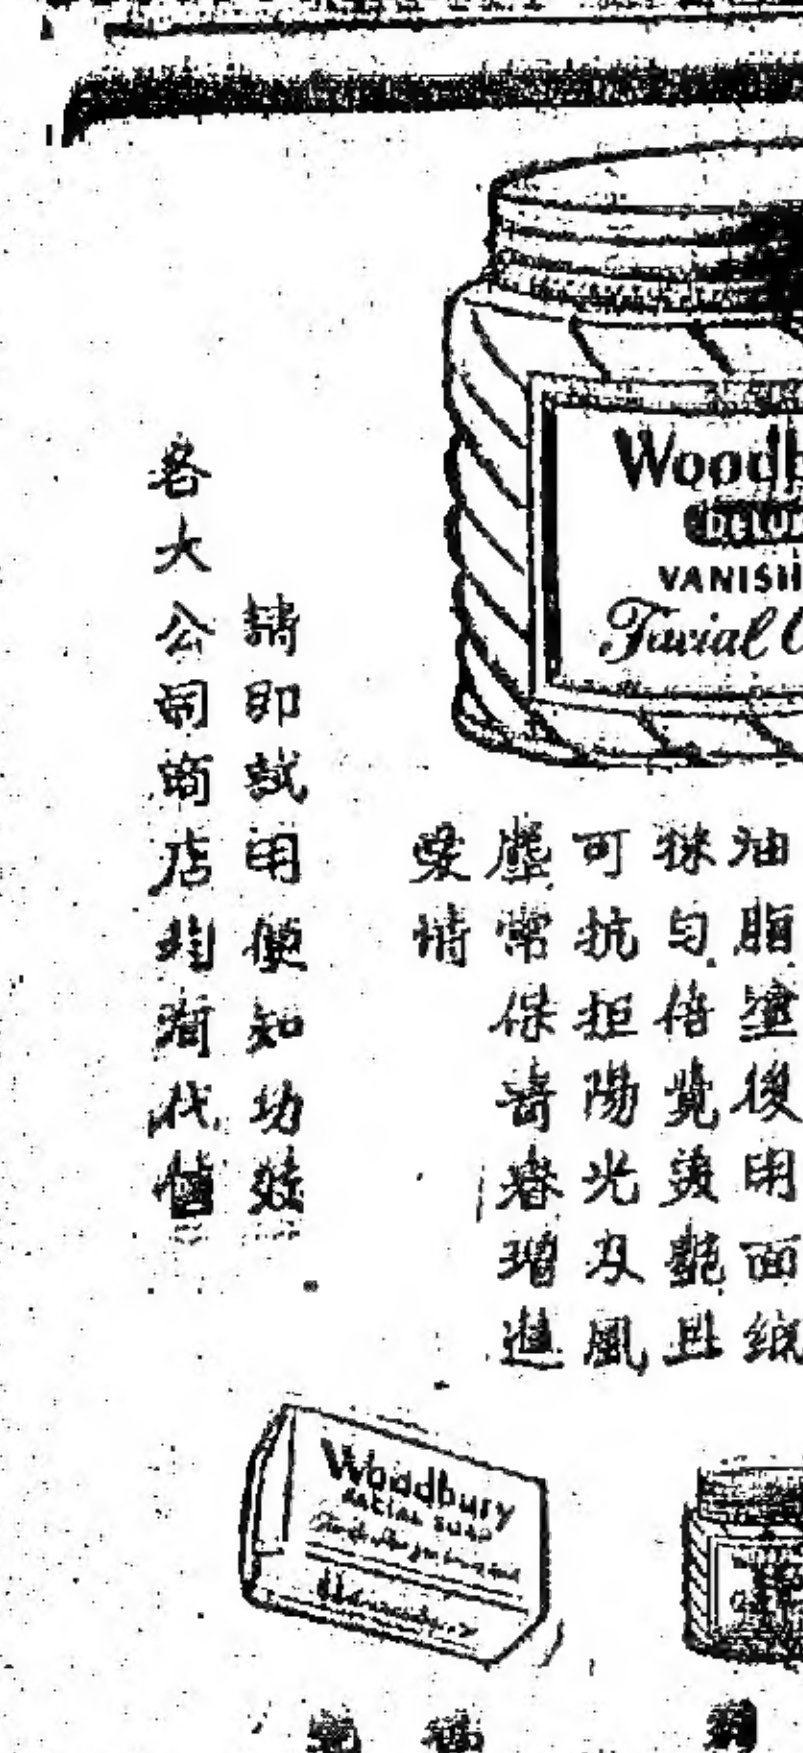 Woodb
DELUX
VANISH
Facial C
油脂塗後用面紙
抹勻倍覺美艷且
可抗拒陽光及風
塵常保青春增進
愛情
請即試用便知功效
各大公司商店均有代售
Woodbury
FACIAL SOAP